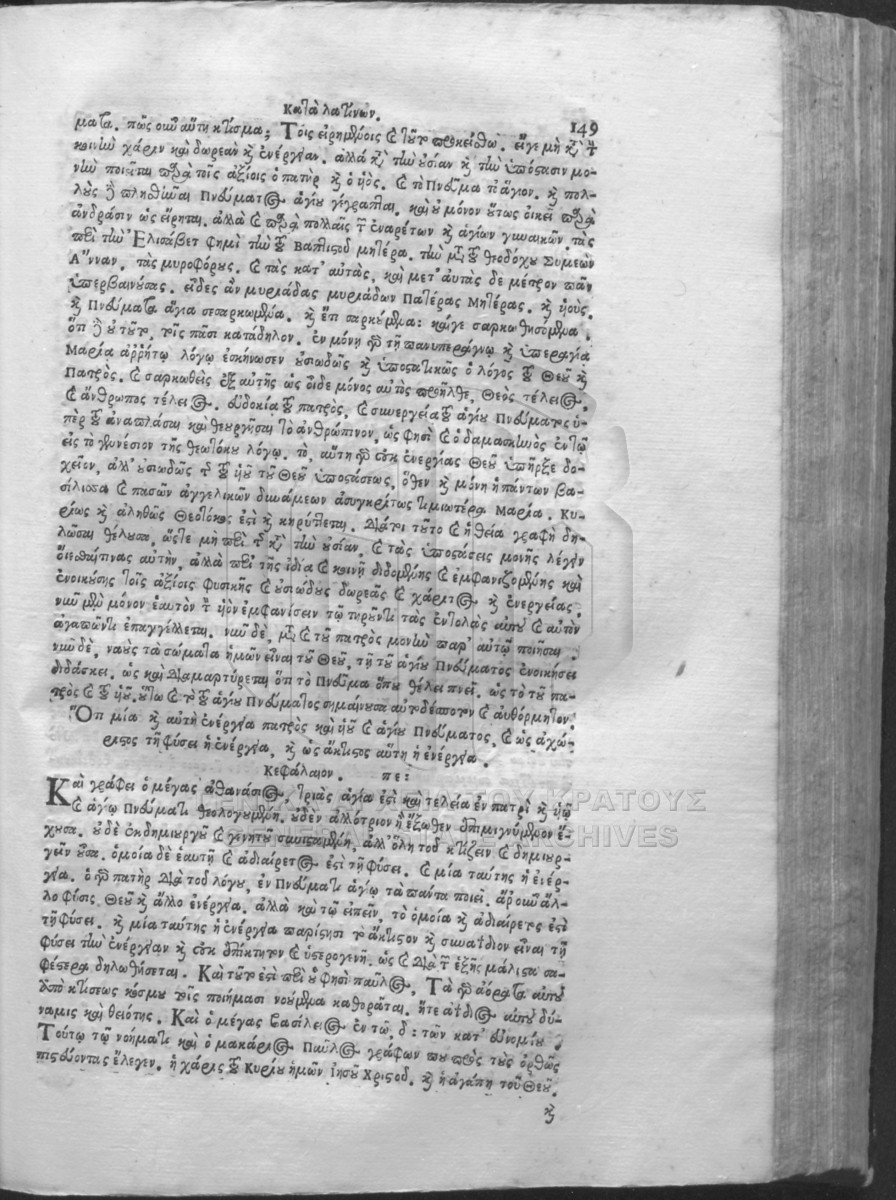 Κατὰ λατίνων.
149
ματα. πῶς οὖν αὕτη κτίσμα; Τοῖς εἰρημένοις καὶ τοῦτο προκείσθω. εἴγε μὴ κατὰ τὴν
κοινὴν χάριν καὶ δωρεὰν καὶ ἐνέργειαν. ἀλλὰ κατὰ τὴν οὐσίαν καὶ τὴν ὑπόστασιν μο-
νὴν ποιεῖται παρὰ τοῖς ἀξίοις ὁ πατὴρ καὶ ὁ υἱός. καὶ τὸ Πνεῦμα τὸ ἅγιον. καὶ πολ-
λοὺς δὲ πλησθῆναι Πνεύματος ἁγίου γέγραπται. καὶ οὐ μόνον οὕτως οἰκεῖ παρὰ
ἀνδράσιν ὡς εἴρηται. ἀλλὰ καὶ παρὰ πολλαῖς τῶν ἐναρέτων καὶ ἁγίων γυναικῶν τὰς
περὶ τὴν Ἐλισάβετ φημὶ τὴν τοῦ Βαπτιστοῦ μητέρα. τὴν μετὰ τοῦ θεοδόχου Συμεὼν
Ἄνναν. τὰς μυροφόρους. καὶ τὰς κατ' αὐτὰς, καὶ μετ' αὐτὰς δὲ μέτρον πᾶν
ὑπερβαινούσας. εἶδες ἂν μυριάδας μυριάδων Πατέρας Μητέρας. καὶ υἱοὺς.
καὶ Πνεύματα ἅγια σεσαρκωμένα. καὶ ἔτι σαρκούμενα: κᾀγε σαρκωθησόμενα.
ὅτι δὲ οὐ τοῦτο, τοῖς πᾶσι κατάδηλον. ἐν μόνῃ γὰρ τῇ πανυπεράγνῳ καὶ ὑπεραγίᾳ
Μαρίᾳ ἀῤῥήτῳ λόγῳ ἐσκήνωσεν οὐσιωδῶς καὶ ὑποστατικῶς ὁ λόγος τοῦ Θεοῦ καὶ
Πατρὸς. καὶ σαρκωθεὶς ἐξ αὐτῆς ὡς οἶδε μόνος αὐτὸς προῆλθε, Θεὸς τέλειος,
καὶ ἄνθρωπος τέλειος. εὐδοκίᾳ τοῦ πατρὸς, καὶ συνεργείᾳ τοῦ ἁγίου Πνεύματος ὑ-
πὲρ τοῦ ἀναπλάσαι καὶ θεουργῆσαι τὸ ἀνθρώπινον, ὡς φησὶ καὶ ὁ δαμασκηνὸς ἐν τῷ
εἰς τὸ γενέσιον τῆς θεοτόκου λόγῳ. τὸ, αὕτη γὰρ οὐκ ἐνεργείας Θεοῦ ὑπῆρξε δο-
χεῖον, ἀλλ' οὐσιωδῶς τῆς τοῦ υἱοῦ τοῦ Θεοῦ ὑποστάσεως, ὅθεν καὶ μόνη ἡ πάντων βα-
σίλισσα καὶ πασῶν ἀγγελικῶν δυνάμεων ἀσυγκρίτως τιμιωτέρα Μαρία. Κυ-
ρίως καὶ ἀληθῶς Θεοτόκος ἐστὶ καὶ κηρύττεται. Διά τι τοῦτο καὶ ἡ θεία γραφὴ δη-
λῶσαι θέλουσα, ὥστε μὴ περὶ τῆς κατὰ τὴν οὐσίαν, καὶ τὰς ὑποστάσεις μονῆς λέγειν
αὐτὴν, ἀλλὰ περὶ τῆς ἰδίᾳ καὶ κοινῇ διδομένης καὶ ἐμφανιζομένης καὶ
ἐνοικούσης τοῖς ἀξίοις φυσικῆς καὶ οὐσιώδους δωρεᾶς καὶ χάριτος καὶ ἐνεργείας.
νῦν μὲν μόνον ἑαυτὸν τὸν υἱὸν ἐμφανίσειν τῷ τηροῦντι τὰς ἐντολὰς αὐτοῦ καὶ αὐτὸν
ἀγαπῶντι ἐπαγγέλλεται. νῦν δὲ, μετὰ καὶ τοῦ πατρὸς μονὴν παρ' αὐτῷ ποιῆσαι.
νῦν δὲ, ναοὺς τὰ σώματα ἡμῶν εἶναι τοῦ Θεοῦ, τῇ τοῦ ἁγίου Πνεύματος ἐνοικήσει
διδάσκει. ὡς καὶ διαμαρτύρεται ὅτι τὸ Πνεῦμα ὅπου θέλει πνεῖ. ὡς τὸ τοῦ πα-
τρὸς καὶ τοῦ υἱοῦ. οὕτω καὶ τὸ τοῦ ἁγίου Πνεύματος σημαίνουσα αὐτοδέσποτον καὶ αὐθόρμητον.
Ὅτι μία καὶ αὐτὴ ἐνέργεια πατρὸς καὶ υἱοῦ καὶ ἁγίου Πνεύματος, καὶ ὡς ἀχώ-
ριστος τῇ φύσει ἡ ἐνέργεια, καὶ ὡς ἄκτιστος αὕτη ἡ ἐνέργεια.
Κεφάλαιον. πε:
Καὶ γράφει ὁ μέγας ἀθανάσιος, τριὰς ἁγία ἐστὶ καὶ τελεία ἐν πατρὶ καὶ υἱῷ
καὶ ἁγίῳ Πνεύματι θεολογουμένη. οὐδὲν ἀλλότριον ἢ ἔξωθεν ἐπιμιγνύμενον ἔ-
χουσα. οὐδὲ ἐκ δημιουργοῦ καὶ γενητοῦ συνισταμένη, ἀλλ' ὅλη τοῦ κτίζειν καὶ δημιουρ-
γεῖν οὖσα. ὁμοία δὲ ἑαυτῇ καὶ ἀδιαίρετος ἐστὶ τῇ φύσει. καὶ μία ταύτης ἡ ἐνέρ-
γεια. ὁ γὰρ πατὴρ διὰ τοῦ λόγου, ἐν Πνεύματι ἁγίῳ τὰ πάντα ποιεῖ. ἄρ' οὖν ἄλ-
λο φύσις Θεοῦ καὶ ἄλλο ἐνέργεια. ἀλλὰ καὶ τῷ εἰπεῖν, τὸ ὁμοία καὶ ἀδιαίρετος ἐστὶ
τῇ φύσει. καὶ μία ταύτης ἡ ἐνέργεια παρίστησι τὸ ἄκτιστον καὶ συναΐδιον εἶναι τῇ
φύσει τὴν ἐνέργειαν καὶ οὐκ ἐπίκτητον καὶ ὑστερογενῆ. ὡς καὶ διὰ τῶν ἑξῆς μάλιστα σα-
φέστερα δηλωθήσεται. Καὶ τοῦτο ἐστὶ περὶ οὗ φησὶ παῦλος, Τὰ γὰρ ἀόρατα αὐτοῦ
ἀπὸ κτίσεως κόσμου τοῖς ποιήμασι νοούμενα καθορᾶται. ἥτε ἀΐδιος αὐτοῦ δύ-
ναμις καὶ θειότης. Καὶ ὁ μέγας βασίλειος ἐν τῷ, δ: τῶν κατ' εὐνομίου.
Τούτῳ τῷ νοήματι καὶ ὁ μακάριος Παῦλος γράφων που πρὸς τοὺς ὀρθῶς
πιστεύοντας ἔλεγεν. ἡ χάρις τοῦ Κυρίου ἡμῶν ἰησοῦ Χριστοῦ. καὶ ἡ ἀγάπη τοῦ Θεοῦ.
καὶ